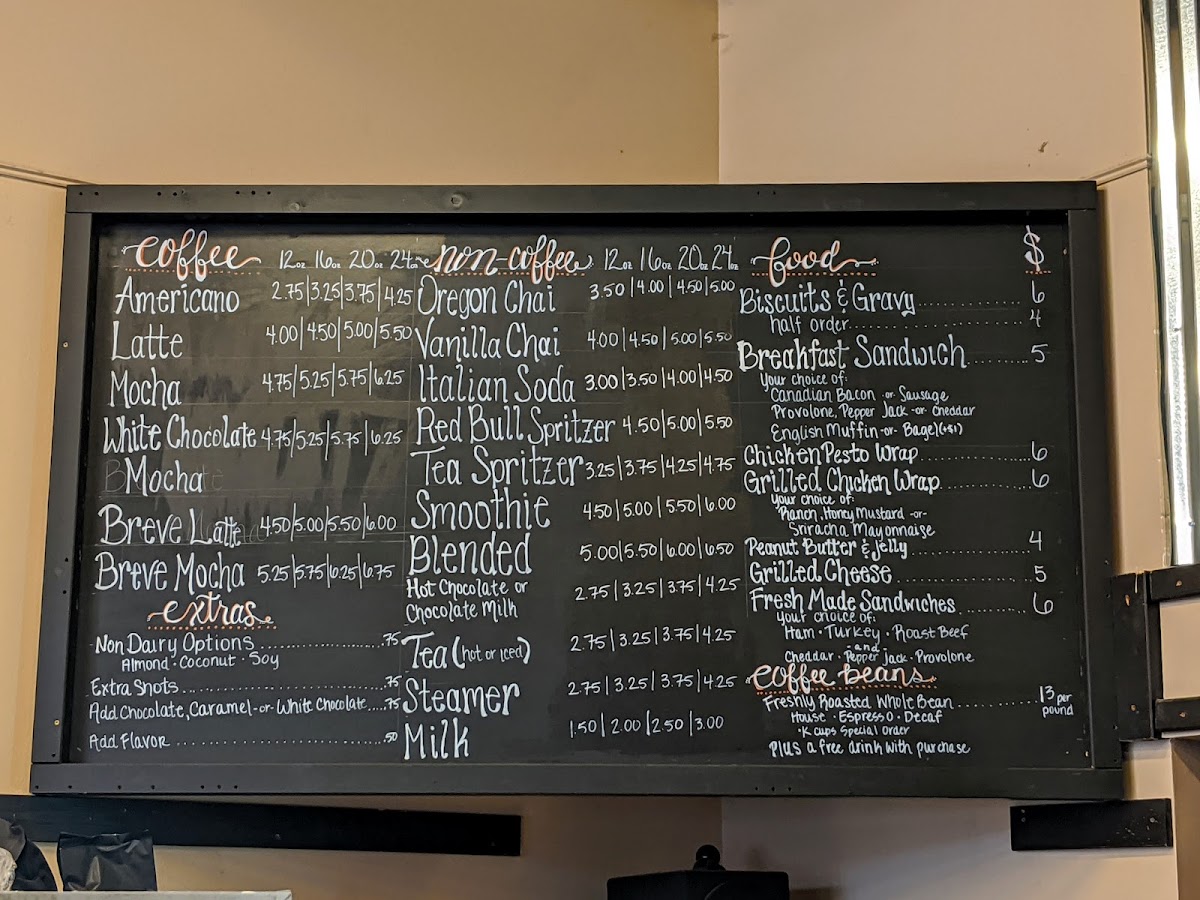 coffee 12oz 16oz 20oz 24oz
Americano 2.75|3.25|3.75|4.25
Latte 4.00|4.50|5.00|5.50
Mocha 4.75|5.25|5.75|6.25
White Chocolate 4.75|5.25|5.75|6.25
Mocha
Breve Latte 4.50|5.00|5.50|6.00
Breve Mocha 5.25|5.75|6.25|6.75
extras
Non Dairy Options .75
Almond · Coconut · Soy
Extra Shots .75
Add Chocolate, Caramel -or- White Chocolate .75
Add Flavor .50
non-coffee 12oz 16oz 20oz 24oz
Oregon Chai 3.50|4.00|4.50|5.00
Vanilla Chai 4.00|4.50|5.00|5.50
Italian Soda 3.00|3.50|4.00|4.50
Red Bull Spritzer 4.50|5.00|5.50
Tea Spritzer 3.25|3.75|4.25|4.75
Smoothie 4.50|5.00|5.50|6.00
Blended 5.00|5.50|6.00|6.50
Hot Chocolate or 2.75|3.25|3.75|4.25
Chocolate Milk
Tea (hot or iced) 2.75|3.25|3.75|4.25
Steamer 2.75|3.25|3.75|4.25
Milk 1.50|2.00|2.50|3.00
food $
Biscuits & Gravy 6
half order 4
Breakfast Sandwich 5
Your choice of:
Canadian Bacon -or- Sausage
Provolone, Pepper Jack -or- Cheddar
English Muffin -or- Bagel (+$1)
Chicken Pesto Wrap 6
Grilled Chicken Wrap 6
Your choice of:
Ranch, Honey Mustard -or-
Sriracha Mayonnaise
Peanut Butter & Jelly 4
Grilled Cheese 5
Fresh Made Sandwiches 6
Your choice of:
Ham · Turkey · Roast Beef
and
Cheddar · Pepper Jack · Provolone
coffee beans
Freshly Roasted Whole Bean 13 per pound
House · Espresso · Decaf
·K cups Special Order
Plus a free drink with purchase